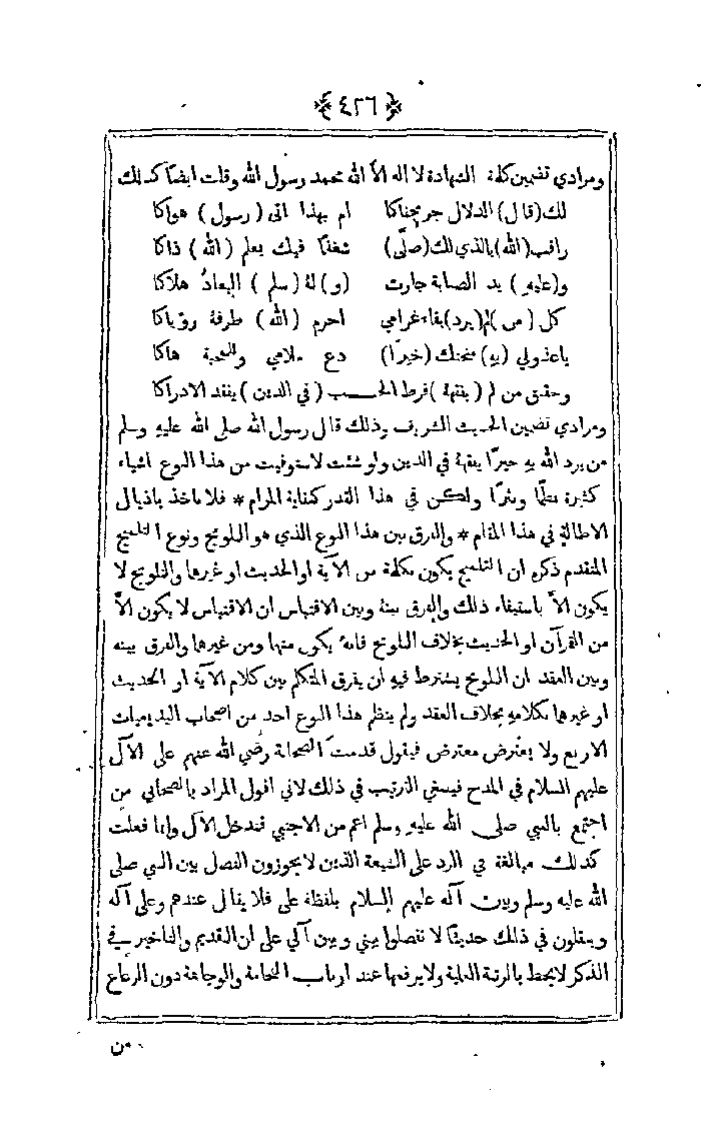 ﴿٤٢٦﴾
ومرادي تضمين كلمة الشهادة لا اله الاّ الله محمد رسول الله وقلت ايضًا كذلك
لك (قال) الدلال جرحناكا ام بهذا اتى (رسول) هواكا
راقب (الله) بالذي لك (صلّى) شغفًا فيك يعلم (الله) ذاكا
و(عليهِ) يد الصبابة جارت (و) لهُ (سلم) البعادُ هلاكا
كل (من) لم (يرد) بقاء غرامي احرم (الله) طرفهُ رؤياكا
ياعذولي (بهِ) منحتك (خيرًا) دع ملامي والمحبة هاكا
وحقق من لم (يفقههُ) فرط الحب (في الدين) يفقد الادراكا
ومرادي تضمين الحديث الشريف وذلك قال رسول الله صلى الله عليهِ وسلم
من يرد الله بهِ خيرًا يفقههُ في الدين ولو شئت لاستوفيت من هذا النوع اشياء
كثيرة نظمًا ونثرًا ولكن في هذا القدر كفاية المرام * فلا ناخذ باذيال
الاطالة في هذا المقام * والفرق بين هذا النوع الذي هو التلويح ونوع التلميح
المتقدم ذكرهِ ان التلميح يكون بكلمة من الآية او الحديث او غيرها والتلويح لا
يكون الاّ باستيفاء ذلك والفرق بينهُ وبين الاقتباس ان الاقتباس لا يكون الاّ
من القرآن او الحديث بخلاف التلويح فانهُ يكون منها ومن غيرها والفرق بينه
وبين العقد ان التلويح يشترط فيهِ ان يفرق المتكلم بين كلام الآية او الحديث
او غيرها بكلامهِ بخلاف العقد ولم ينظم هذا النوع احد من اصحاب البديعيات
الاربع ولا يعترض معترض فيقول قدمت الصحابة رضي الله عنهم على الآل
عليهم السلام في المدح فيسئي الترتيب في ذلك لاني اقول المراد بالصحابي من
اجتمع بالنبي صلى الله عليهِ وسلم اعم من الاجنبي فتدخل الآل وانما فعلت
كذلك مبالغة في الرد على الشيعة الذين لا يجوزون الفصل بين النبي صلى
الله عليه وسلم وبين آله عليهم السلام بلفظة على فلا يقال عندهم وعلى آله
وينقلون في ذلك حديثًا لا تفصلوا بيني وبين آلي على ان التقديم والتاخير في
الذكر لا يحط بالرتبة العلية ولا يرفعها عند ارباب الفخامة والوجاهة دون الرعاع
من